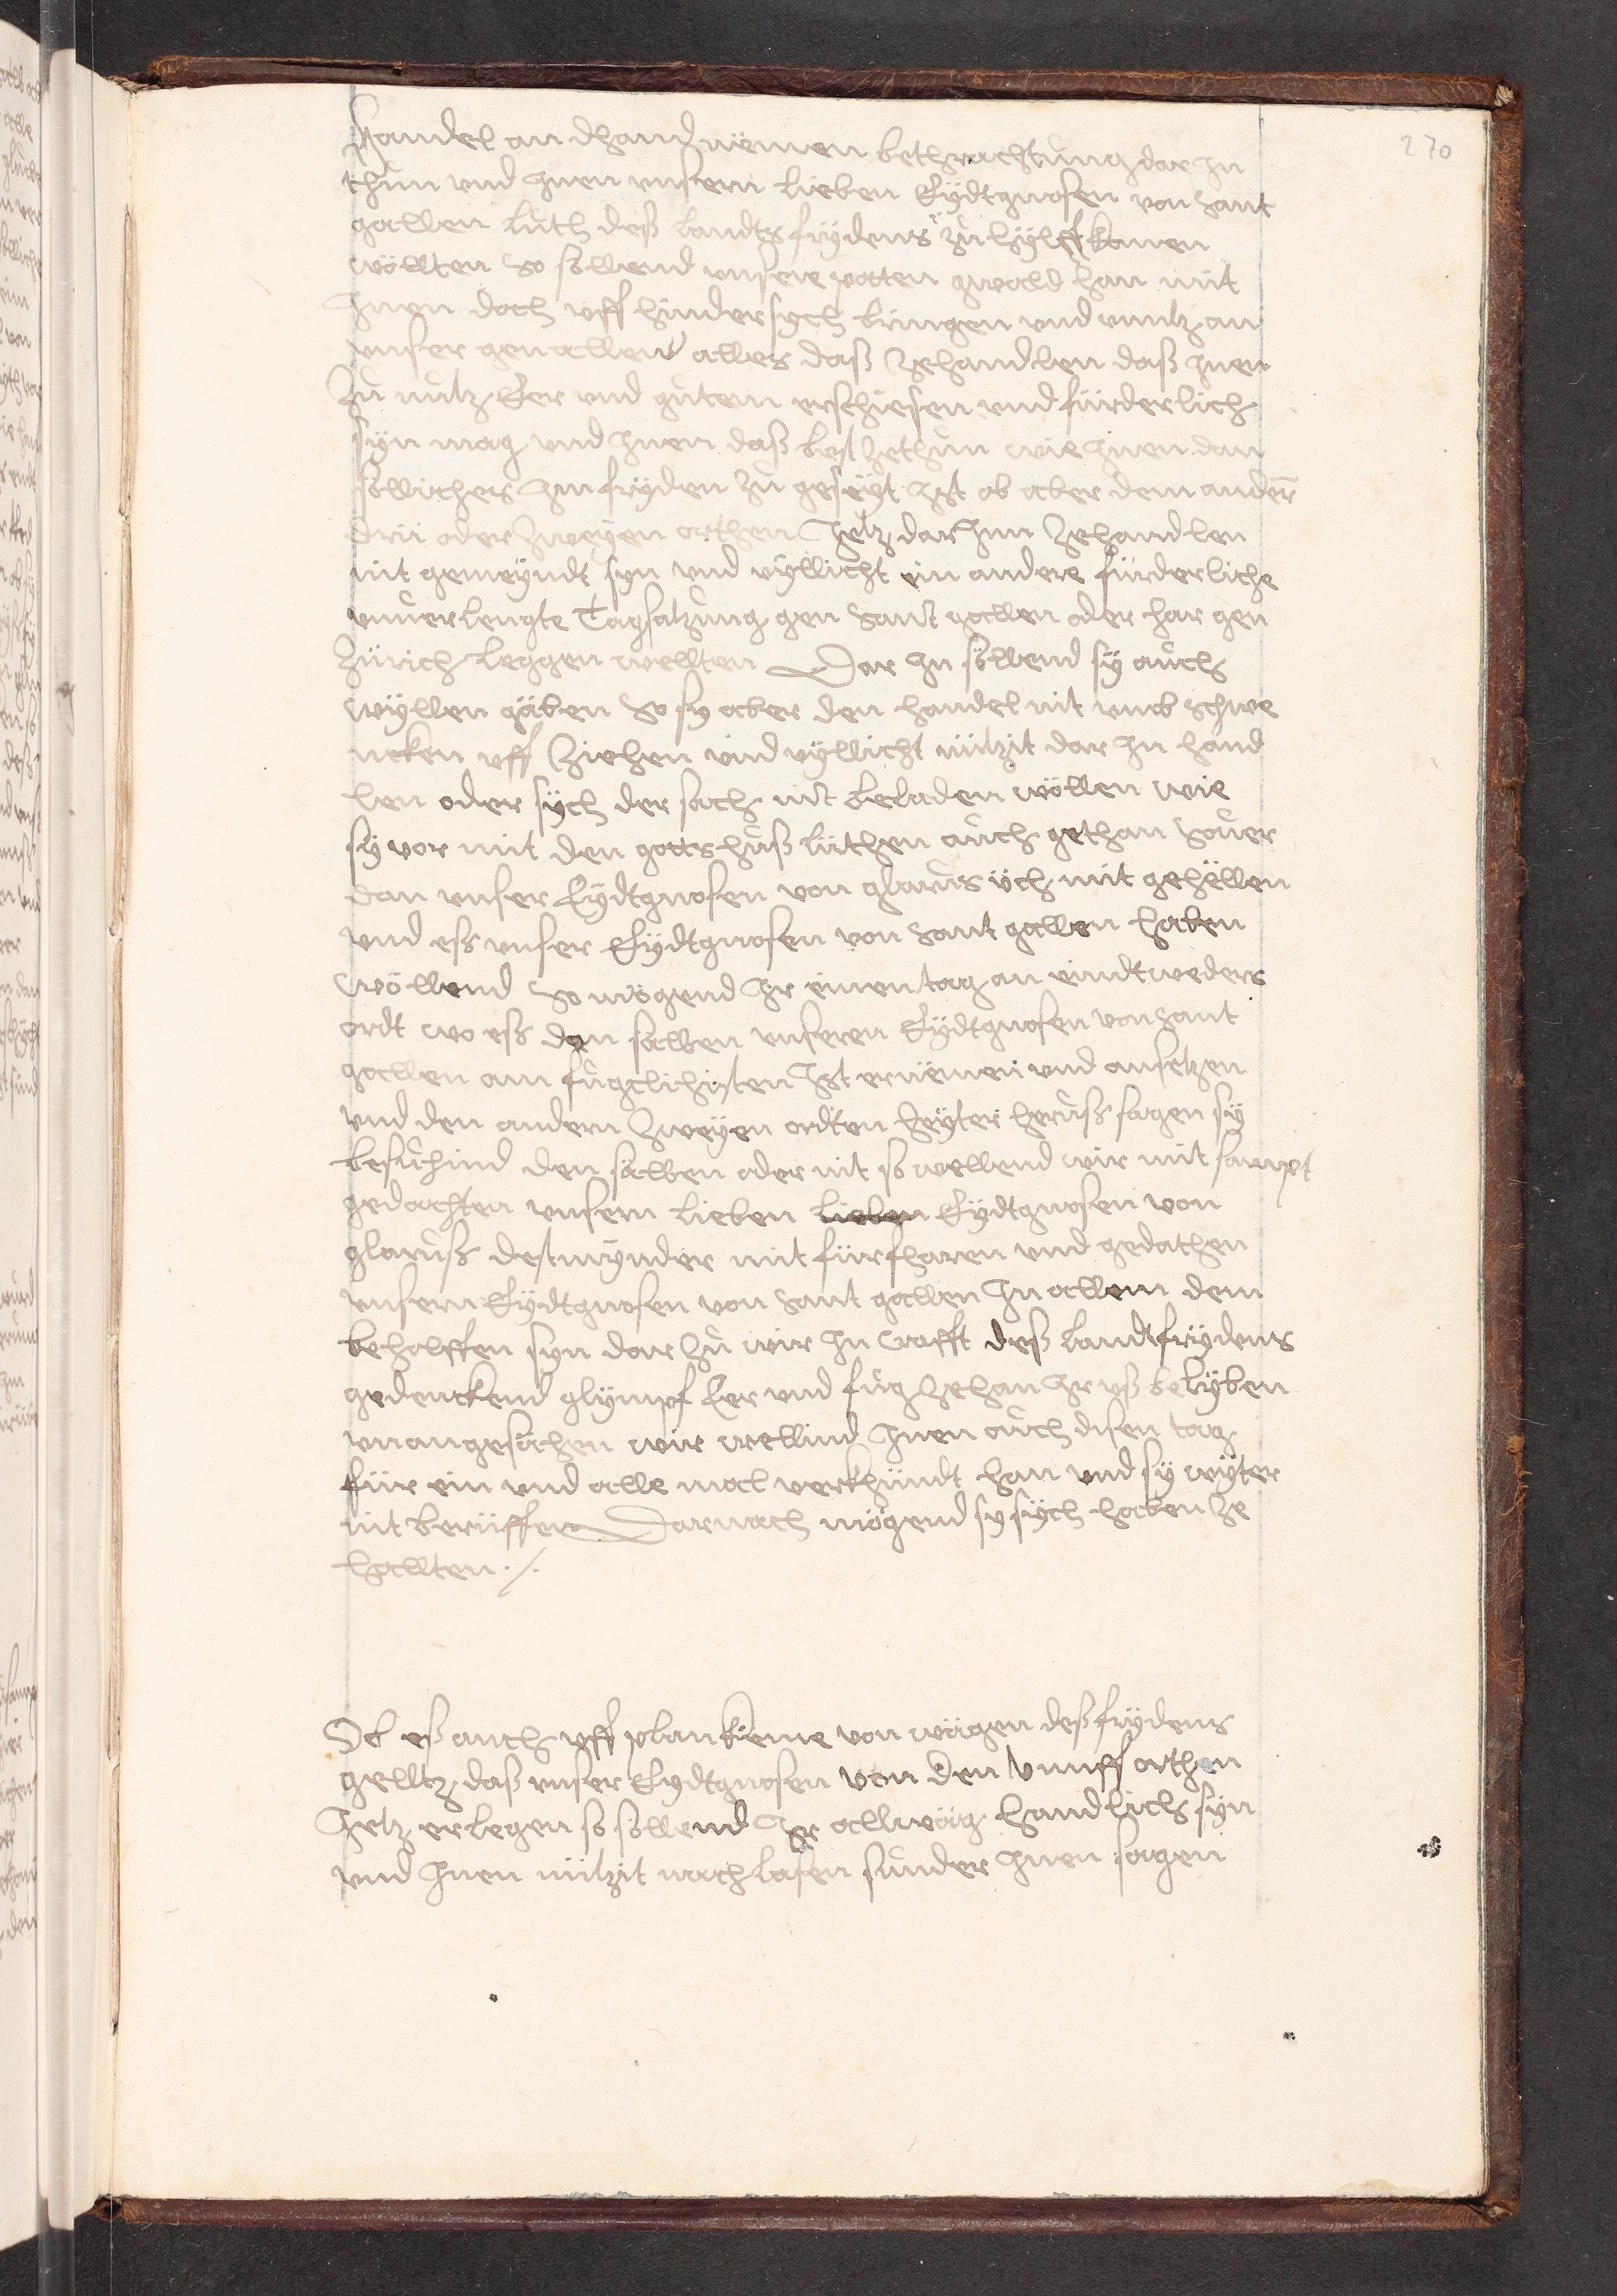 270
Handel an dhand nëmen bethrachtung dar jn
thun vnd jnen vnsern lieben Eydtgnosen von sant
gallen luth deß landtsfrydens zu hylff komen
wöllten so söllend vnsere potten gwald han mit
jnen doch vff hinder sych bringen vnd vnntz an
vnser genallenn alles daß zehandlen daß jnen
zu nutz Eer vnd gutem erschiesen vnd fürderlich
syn mag vnd jnen daß best zethun wie jnen dan
söllichers jm fryden zu geseyt jst ob aber dem andern
drü oder zweyen orthen jetz dar jnn zehandlen
nit gemeyndt syn vnd vyllicht ein andere fürderliche
vnuerlengte Tagsatzung gen sant gallen oder har gen
zürich leggen wellten Dar jn söllend sy auch
wyllen gäben So sy aber den handel nit vmb schwe
ncken vff ziehen vnd vyllicht nützit dar jn hand
len oder sych der sach nit beladen wöllen wie
sy vor mit den gottshuß lüthen auch gethan Souer
dan vnser Eydtgnosen von glarus üch mit gehëllen
vnd eß vnser Eydtgnosen von sant gallen haben
wöllend So mögend jr einen tag an eindtweders
ordt wo eß dan sälben vnseren Eydtgnosen von sant
gallen am fuglichisten jst ernëmen vnd ansetzen
vnd den andern zweyen ordten heyter heruß sagen sy
besuchind den sälben oder nit so wellend wir mit sampt
gedachten vnsern lieben lieben Eydtgnosen von
glaruß destmynder nit fürfharen vnd gedathen
vnsern Eydtgnosen von sant gallen jn allem dem
beholffen syn dar zu wir jn crafft deß landtfrydens
gedenckend glympf Eer vnd fug zehan jr vß belyben
vnangesächen wir wellind jnen auch disen tag
für ein vnd alle mal verkhündt han vnd sy wyter
nit berüffen Darnach mögend sy sych haben ze
hallten ./.
Ob eß auch vff plan käme von wägen deß frydens
gelltz daß vnser Eydtgnosen von den vünff orthen
jetz erlegen so söllend jr allwäg handlich syn
vnd jnen nützit nachlasen sunder jnen sagen